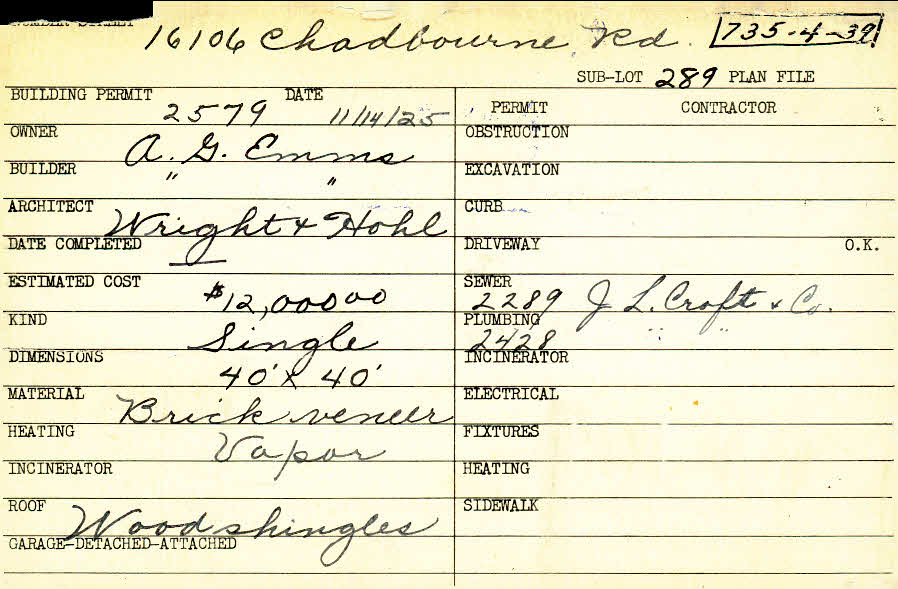 NUMBER STREET
16106 Chadbourne Rd. 735-4-39
SUB-LOT 289 PLAN FILE
BUILDING PERMIT 2579 DATE 11/14/25
PERMIT CONTRACTOR
OWNER A. G. Emms
OBSTRUCTION
BUILDER " "
EXCAVATION
ARCHITECT Wright & Hohl
CURB
DATE COMPLETED —
DRIVEWAY O.K.
ESTIMATED COST $12,000 00
SEWER 2289 J L. Croft & Co.
KIND Single
PLUMBING 2428 " "
DIMENSIONS 40' x 40'
INCINERATOR
MATERIAL Brick veneer
ELECTRICAL
HEATING Vapor
FIXTURES
INCINERATOR
HEATING
ROOF Wood shingles
SIDEWALK
GARAGE-DETACHED-ATTACHED